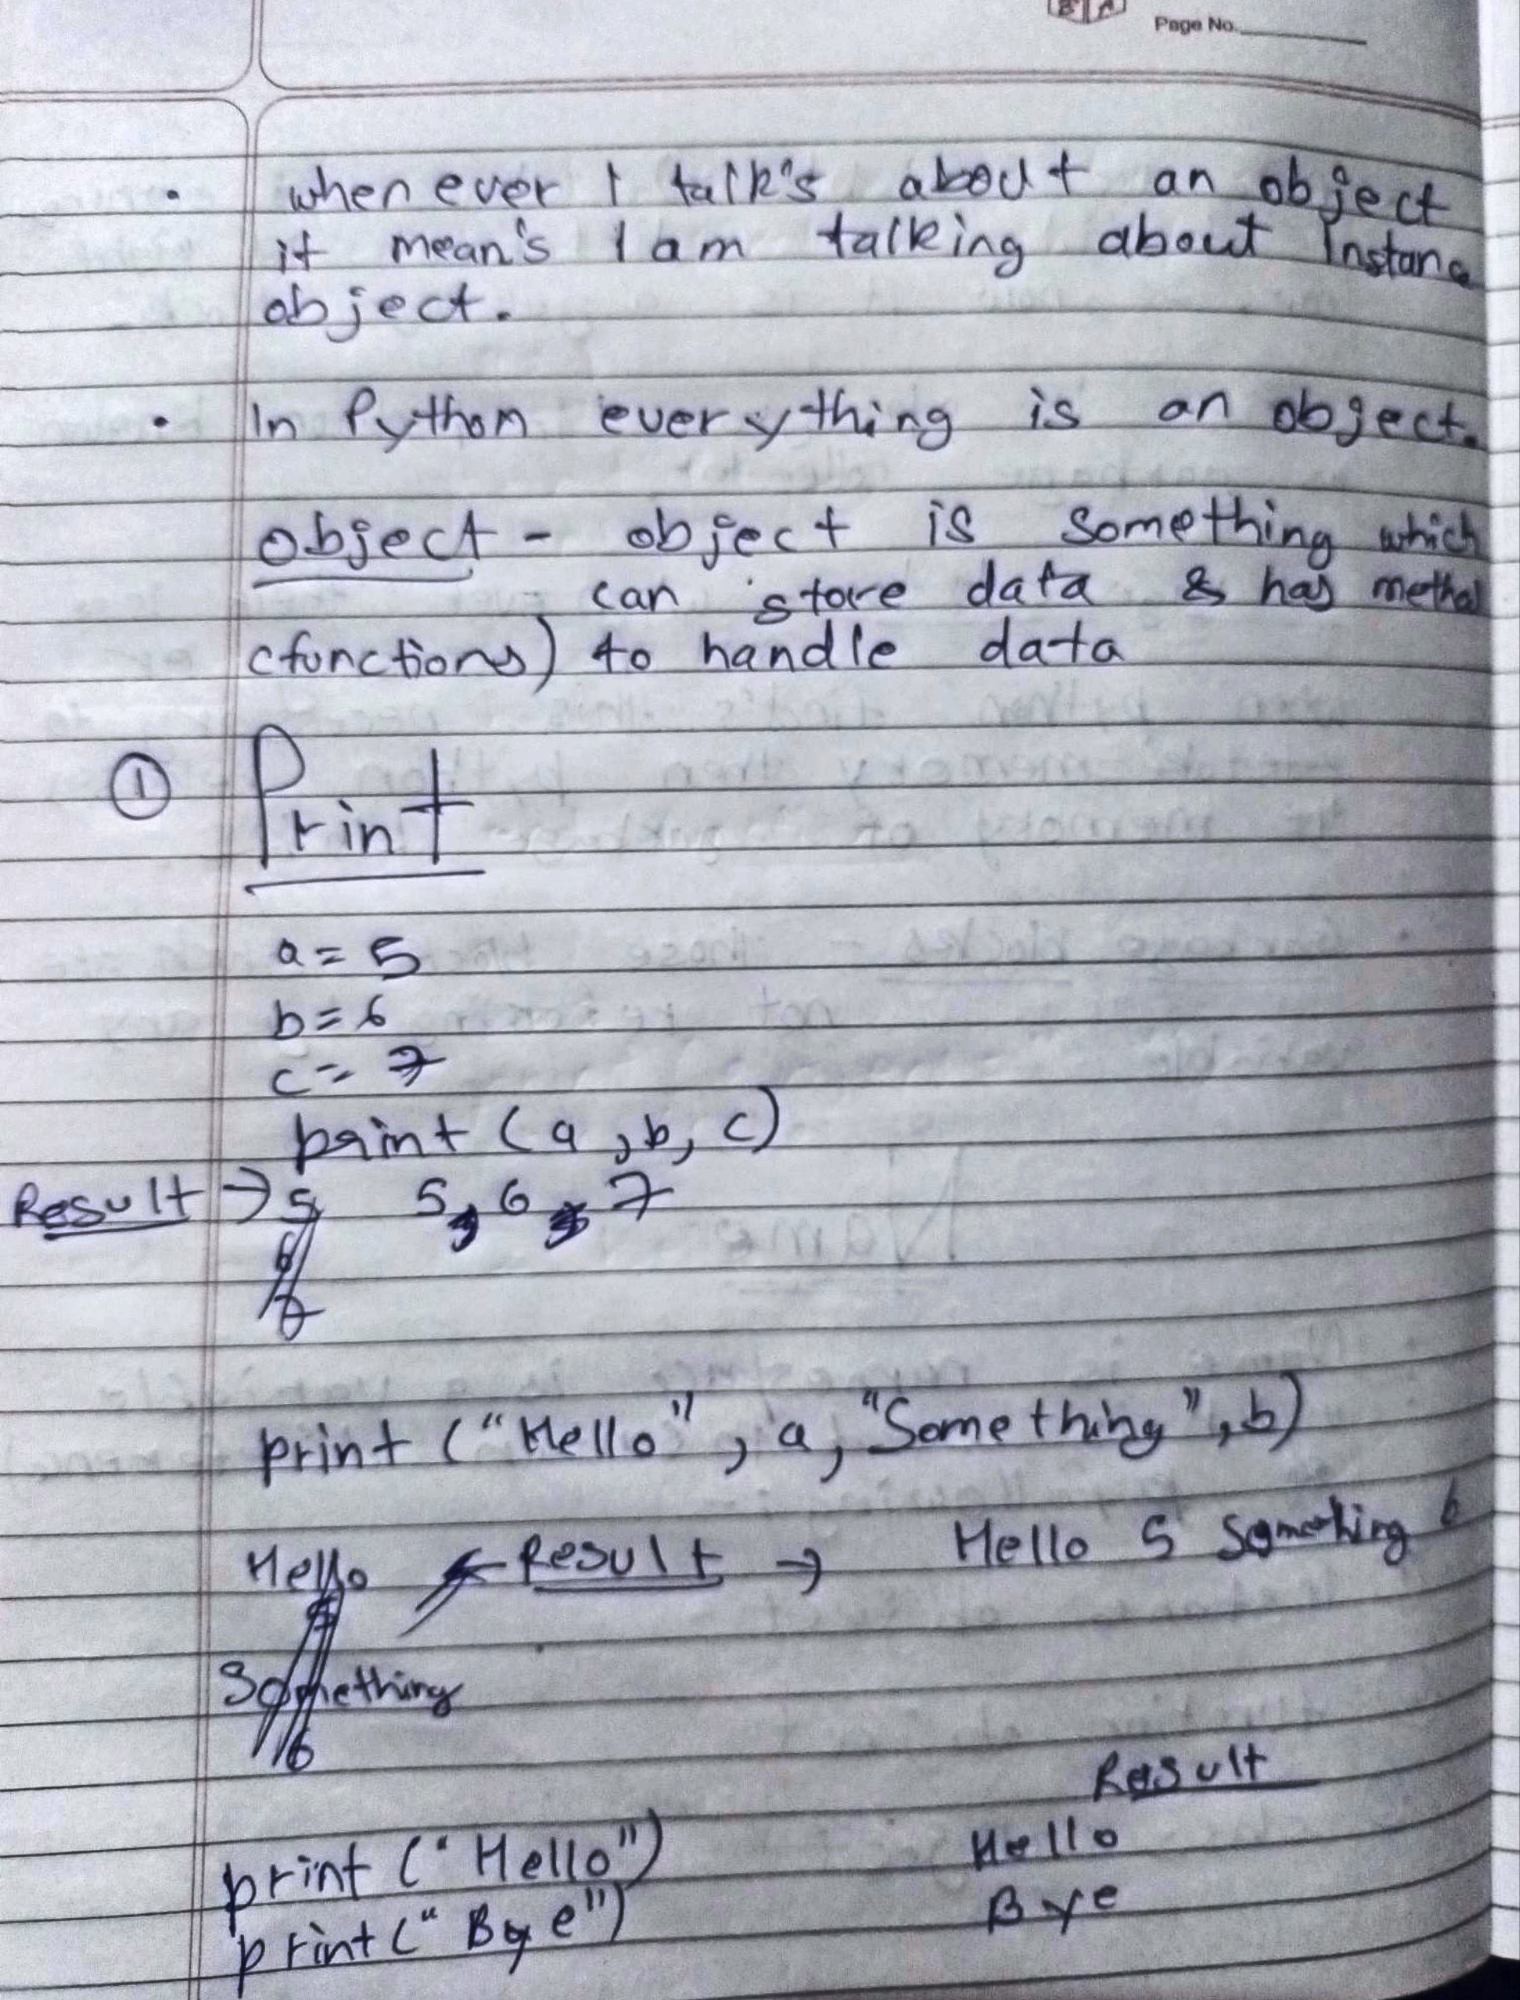 B A
Page No.
• when ever I talk's about an object
it mean's I am talking about Instance
object.
• In Python everything is an object.
object - object is something which
can store data & has method
(functions) to handle data
① Print
a = 5
b = 6
c = 7
print (a, b, c)
Result → 5 5, 6, 7
6
7
print ("Hello", a, "Something", b)
Hello ← Result → Hello 5 Something 6
5
Something
6
Result
print ("Hello") Hello
print (" Bye") Bye